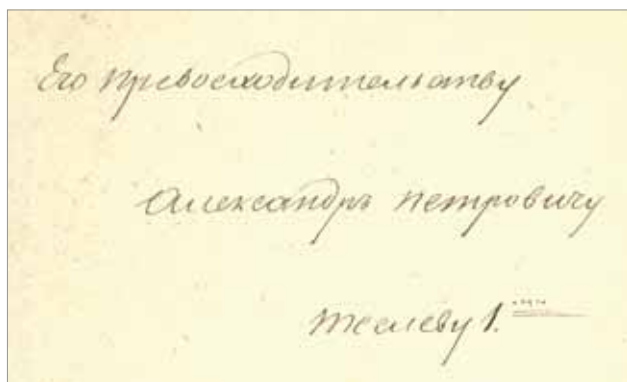 Его превосходительству
Александръ Петровичу
Теслеву 1.